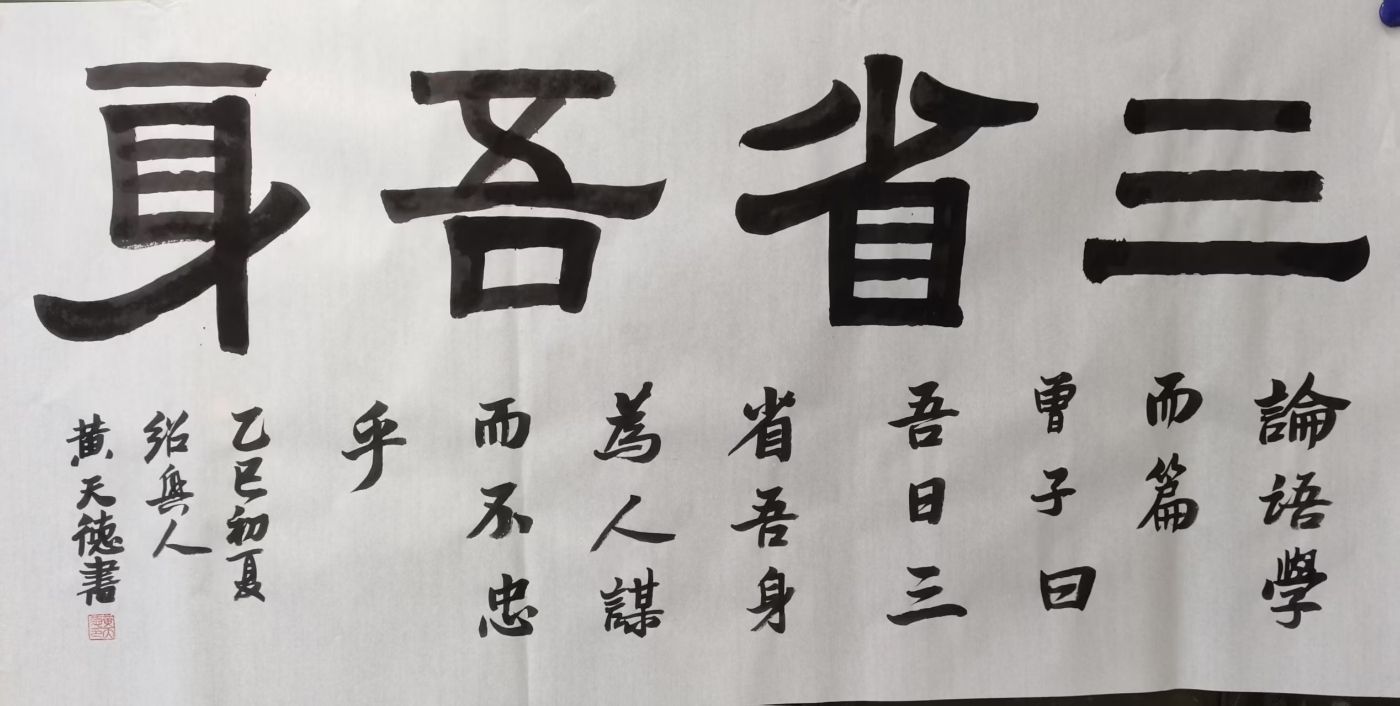 三省吾身
論語學
而篇
曾子曰
吾日三
省吾身
為人謀
而不忠
乎
乙巳初夏
紹興人
黄天德書